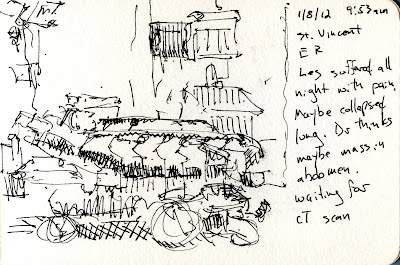 1/8/12 9:53am
St. Vincent
ER
Les suffered all
night with pain.
Maybe collapsed
lung. Dr thinks
maybe mass in
abdomen.
waiting for
CT scan